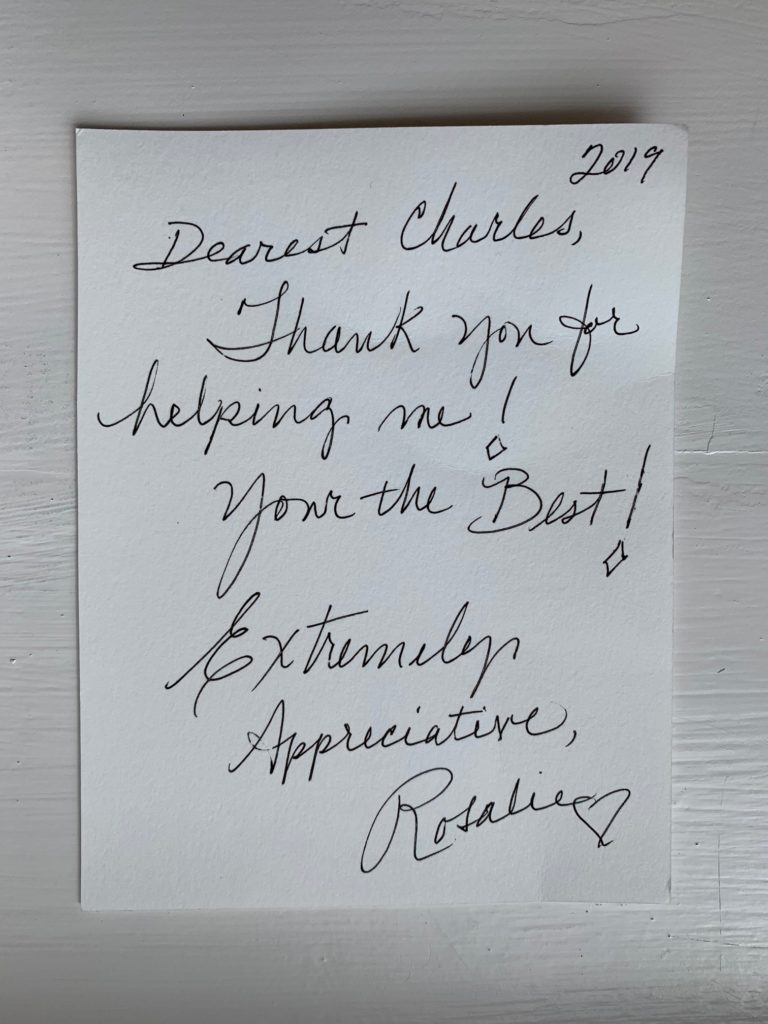 2019
Dearest Charles,
Thank you for
helping me!
Your the Best!
Extremely
Appreciative,
Rosalie